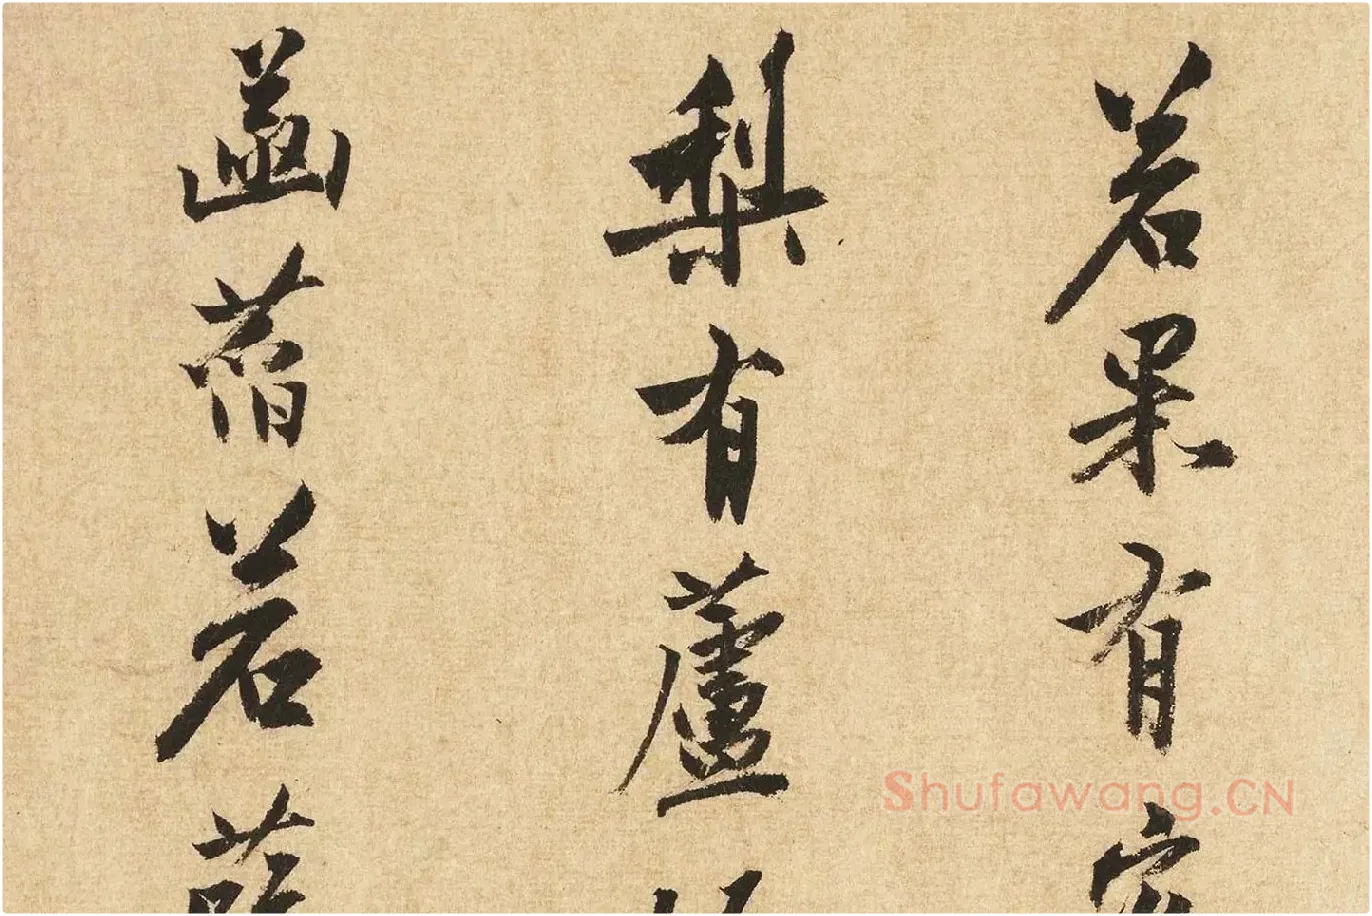 若果有
梨有蘆
菡萏若
Shufawang.CN